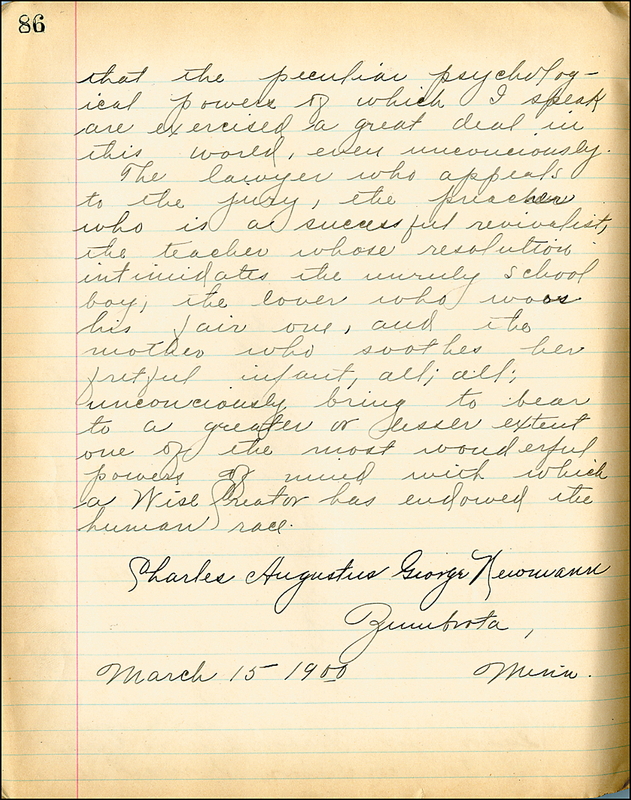 86
that the peculiar psycholog-
ical powers of which I speak
are exercised a great deal in
this world, even unconciously.
The lawyer who appeals
to the jury, the preacher
who is a successful revivalist,
the teacher whose resolution
intimidates the unruly school
boy, the lover who woos
his fair one, and the
mother who soothes her
fretful infant, all; all;
unconciously bring to bear
to a greater or lesser extent
one of the most wonderful
powers of mind with which
a Wise Creator has endowed the
human race.
Charles Augustus George Newmann
Zumbrota,
March 15 1900 Minn.